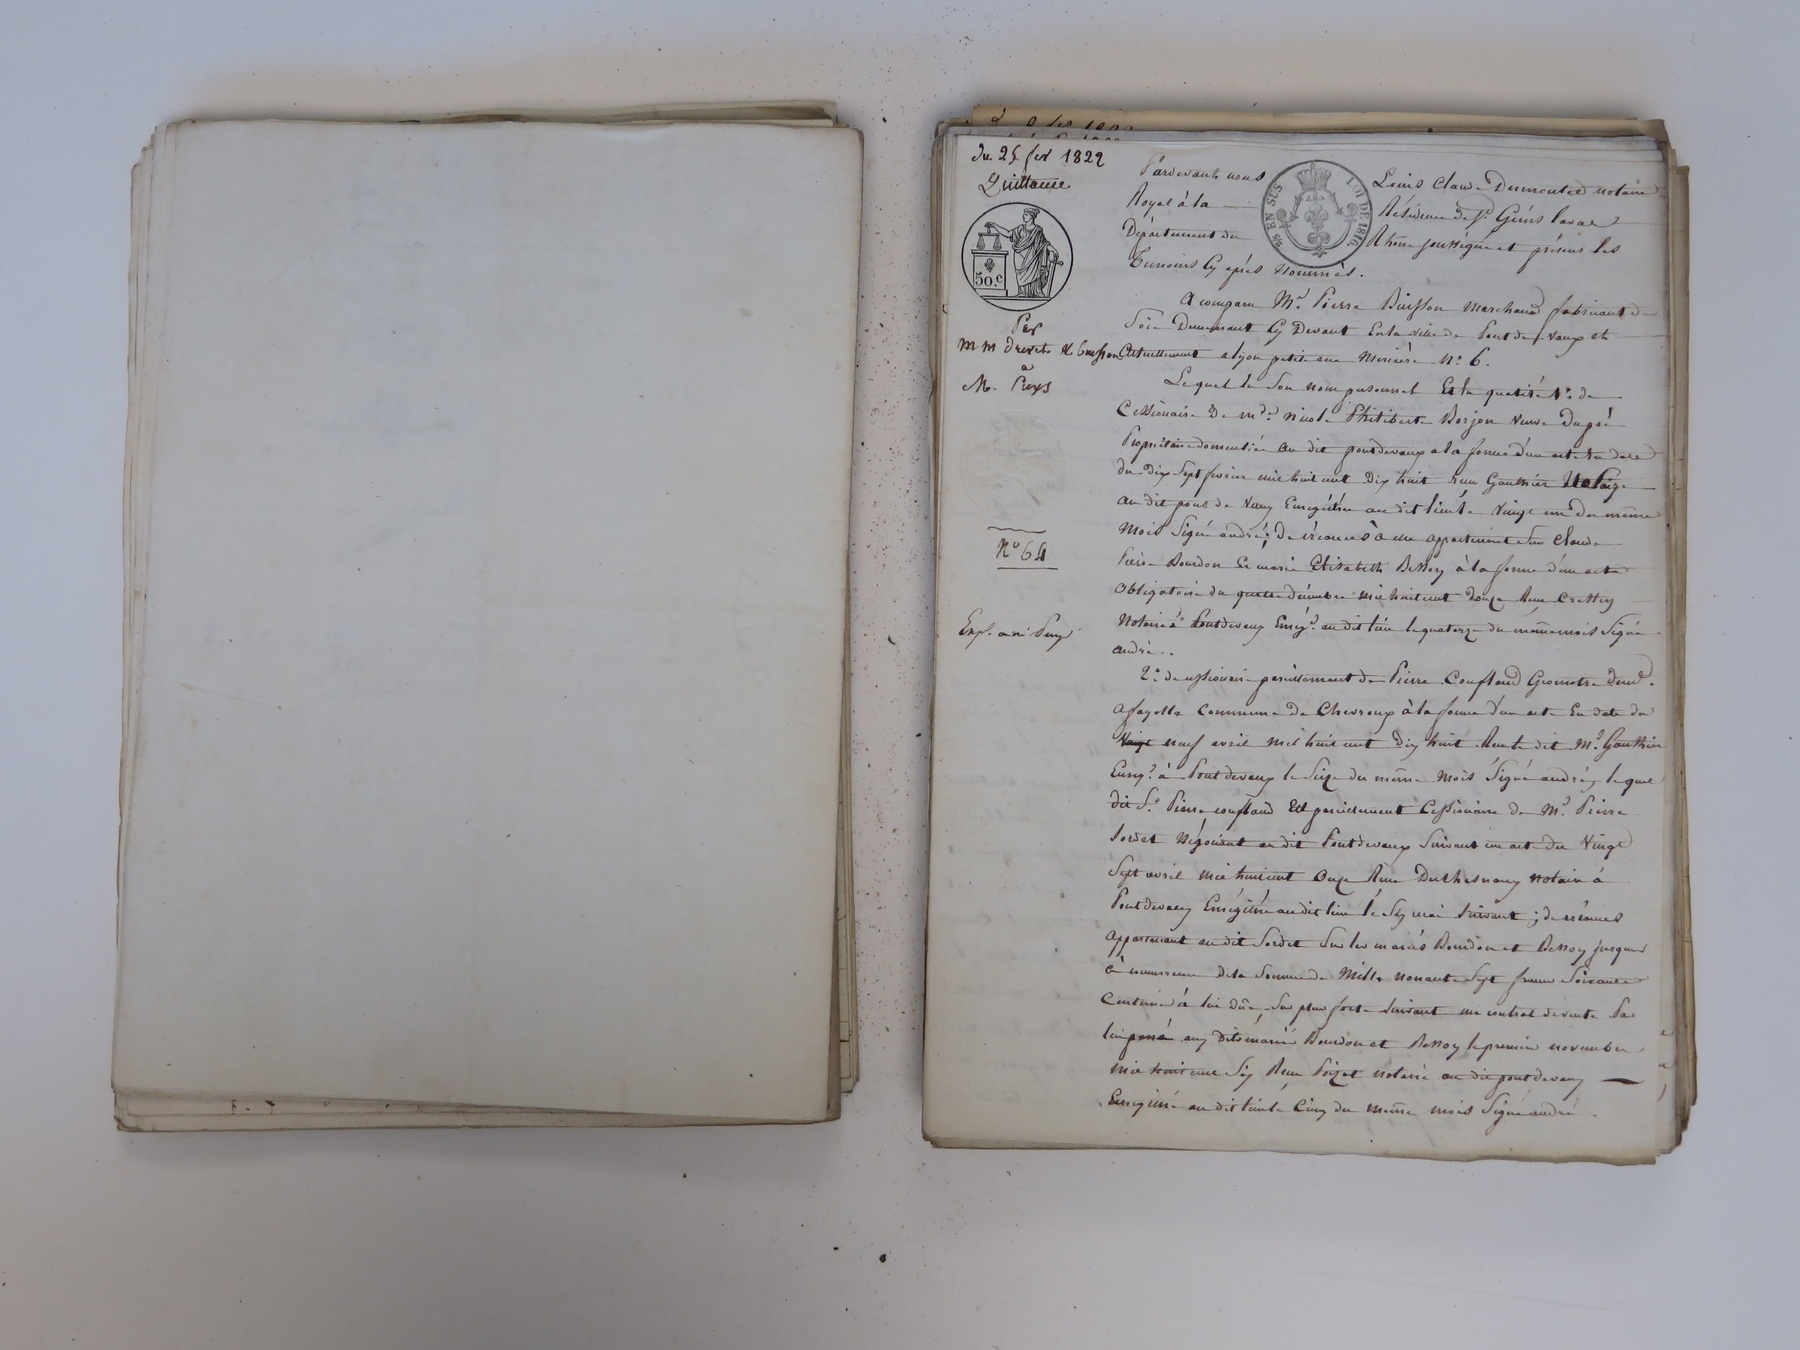 du 25 fev 1822
Quittance
50.c
Par
m m drevet & buisson
a
M. Puys
N° 64
Exp. a m. Puys
EN SUS
LOI DE 1816
Pardevant nous Louis Claude Dumortier notaire
Royal à la Résidence de St. Genis laval
Département du Rhone soussigné et présens les
temoins Cy après Nommés.
A comparu Mr. Pierre Buisson marchand fabricant de
Soie Demeurant Cy Devant En la ville de Pont de vaux et
Actuellement a lyon petite rue Merciere N° 6.
Lequel En Son nom personnel Et En qualité 1° de
Cessionaire De mde. nicole Philiberte Borjon veuve Dugré
Propriétaire domiciliée au dit pontdevaux a la forme d'un acte En date
du Dix Sept fevrier mil huit cent Dix huit reçu Gauthier Notaire
au dit pont de Vaux Enregistré au dit lieu le Vingt un du même
Mois Signé andré; De créances à elle appartenantes Sur Claude
Pierre Bourdon Et marie Elisabeth Bessoy à la forme d'un acte
Obligatoire du quatre décembre mil huit cent Douze Reçu
Notaire à Pontdevaux Enregé. au dit lieu le quatorze du même mois Signé
andré.
2° de cessionaire pareillement de Pierre Couffaud Géometre Demt.
a fayolle Commune De Chevroux à la forme d'un acte En date du
neuf avril mil huit cent dix huit Reçu le dit Mr. Gauthier
Enregé. à Pontdevaux le Seize du même Mois Signé andré, lequel
dit Sr. Pierre couffaud Est pareillement Cessionaire de Mr. Pierre
Sordet Négociant au dit Pontdevaux Suivant un acte du Vingt
Sept avril mil huit cent Onze Reçu Duchesnay notaire à
Pontdevaux Enregistré au dit lieu le Six mai Suivant; de créances
appartenant au dit Sordet Sur les mariés Bourdon et Bessoy jusques
à concurrence de la Somme de Mille nonante Sept francs Soixante
Centimes à lui dûe, Sur plus forte Suivant un contrat de vente Par
lui passé aux dits mariés Bourdon et Bessoy le premier novembre
mil huit cent Six Reçu Poizat notaire au dit pontdevaux
Enregistré au dit lieu le Cinq du même mois Signé andré.